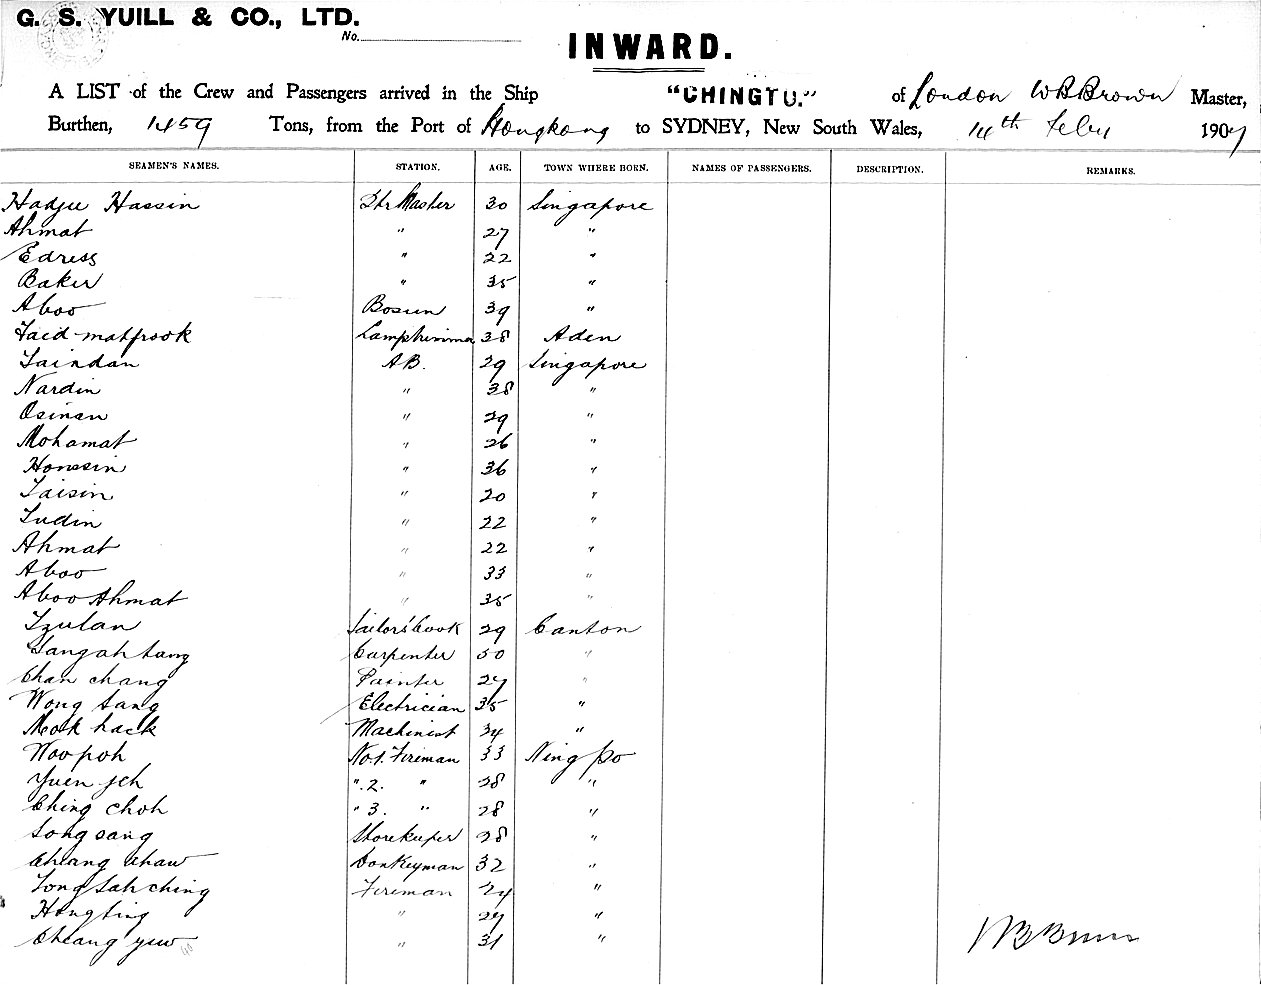 G. S. YUILL & CO., LTD.
No.
INWARD.
A LIST of the Crew and Passengers arrived in the Ship "CHINGTU." of London W B Brown Master,
Burthen, 1459 Tons, from the Port of Hongkong to SYDNEY, New South Wales, 14th Feby 1907
SEAMEN'S NAMES. STATION. AGE. TOWN WHERE BORN. NAMES OF PASSENGERS. DESCRIPTION. REMARKS.
Hadjee Hassin Qtr Master 30 Singapore
Ahmat " 27 "
Edress " 22 "
Baker " 35 "
Aboo Bosun 39 "
Lamptrimmer 38 Aden
Saindan AB. 29 Singapore
Nardin " 38 "
Osinan " 29 "
Mohamat " 26 "
Honssin " 36 "
Taisin " 20 "
Tudin " 22 "
Ahmat " 22 "
Aboo " 33 "
Aboo Ahmat " 35 "
Sailors' Cook 29 Canton
Carpenter 50 "
Chan chang Painter 27 "
Wong Sang Electrician 35 "
Mok hack Machinist 34 "
Woo poh No.1. Fireman 33 Ning po
Yuen " 2. " 28 "
Ching choh " 3. " 28 "
Song sang Storekeeper 28 "
Chiang chaw Donkeyman 32 "
Tong Sah ching Fireman 24 "
Hong ting " 27 "
Chiang yew " 31 "
W B Brown